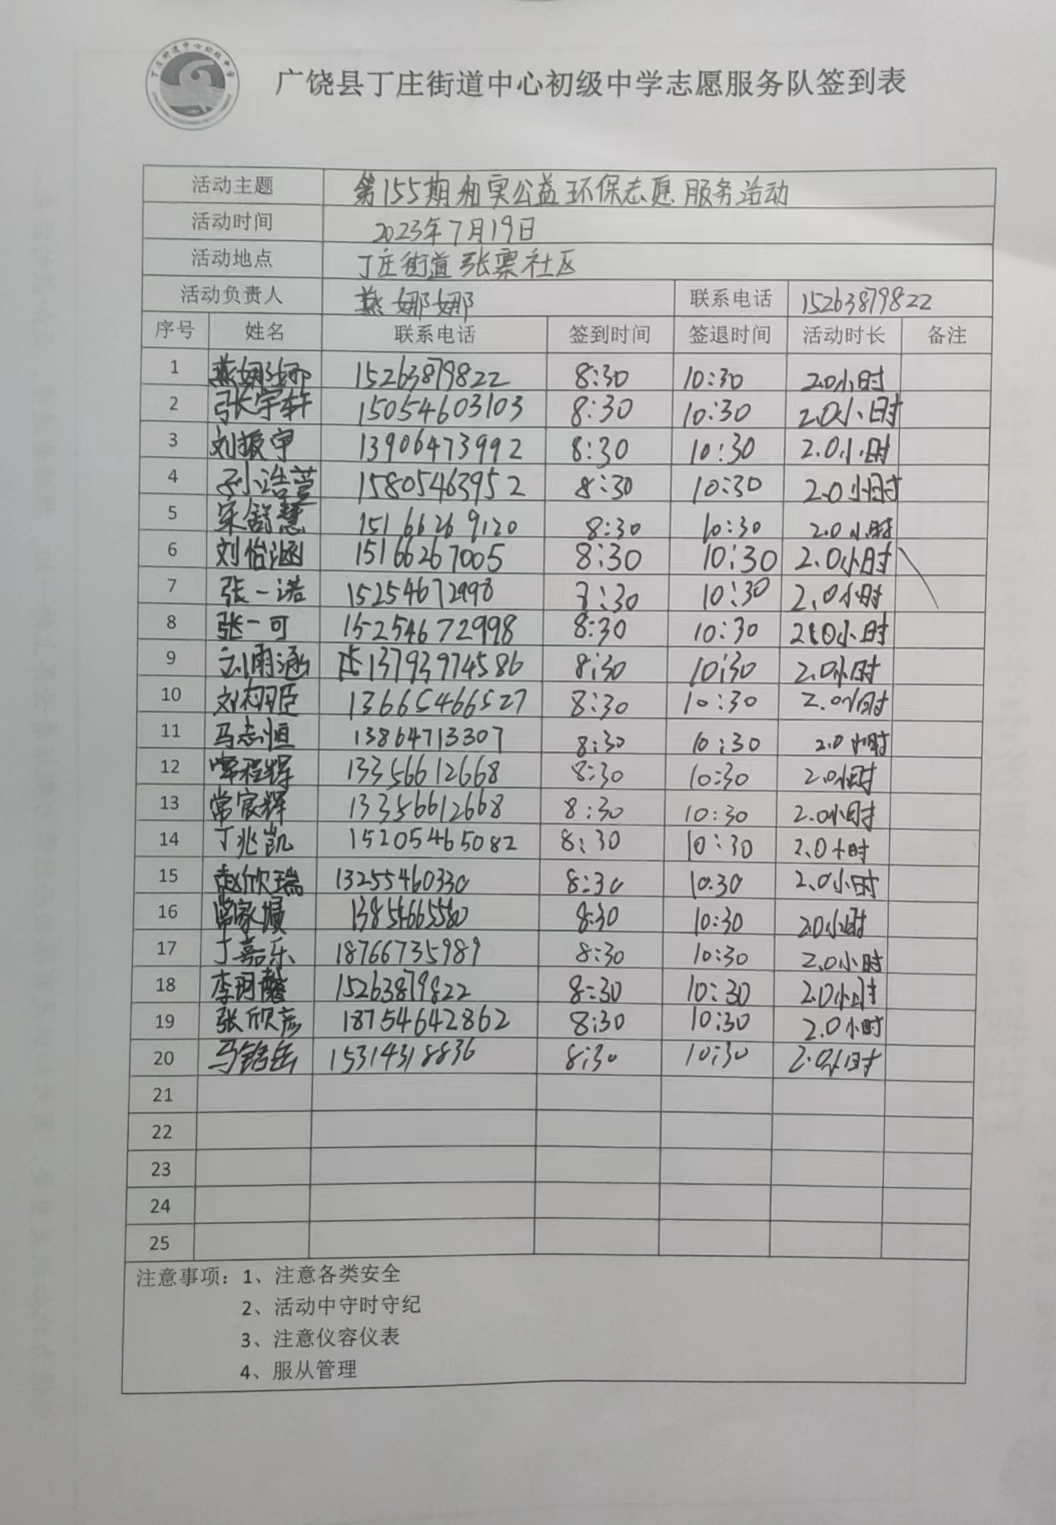 丁庄街道中心初级中学
广饶县丁庄街道中心初级中学志愿服务队签到表
活动主题 第155期和实公益环保志愿服务活动
活动时间 2023年7月19日
活动地点 丁庄街道张票社区
活动负责人 燕娜娜 联系电话 15263879822
序号 姓名 联系电话 签到时间 签退时间 活动时长 备注
1 燕娜娜 15263879822 8:30 10:30 2.0小时
2 张宇轩 15054603103 8:30 10:30 2.0小时
3 刘振宇 13906473992 8:30 10:30 2.0小时
4 孙浩萱 15805463952 8:30 10:30 2.0小时
5 宋舒慧 15166269120 8:30 10:30 2.0小时
6 刘怡涵 15166267005 8:30 10:30 2.0小时
7 张一诺 15254672998 8:30 10:30 2.0小时
8 张一可 15254672998 8:30 10:30 2.0小时
9 刘雨涵 13793974586 8:30 10:30 2.0小时
10 刘栩臣 13665466527 8:30 10:30 2.0小时
11 马志恒 13864713307 8:30 10:30 2.0小时
12 常程辉 13356612668 8:30 10:30 2.0小时
13 常宸辉 13356612668 8:30 10:30 2.0小时
14 丁兆凯 15205465082 8:30 10:30 2.0小时
15 赵欣瑞 13255460330 8:30 10:30 2.0小时
16 常家 13854665580 8:30 10:30 2.0小时
17 丁嘉乐 18766735989 8:30 10:30 2.0小时
18 李玥馨 15263879822 8:30 10:30 2.0小时
19 张欣彦 18754642862 8:30 10:30 2.0小时
20 马铭岳 15314318836 8:30 10:30 2.0小时
21
22
23
24
25
注意事项：1、注意各类安全
2、活动中守时守纪
3、注意仪容仪表
4、服从管理